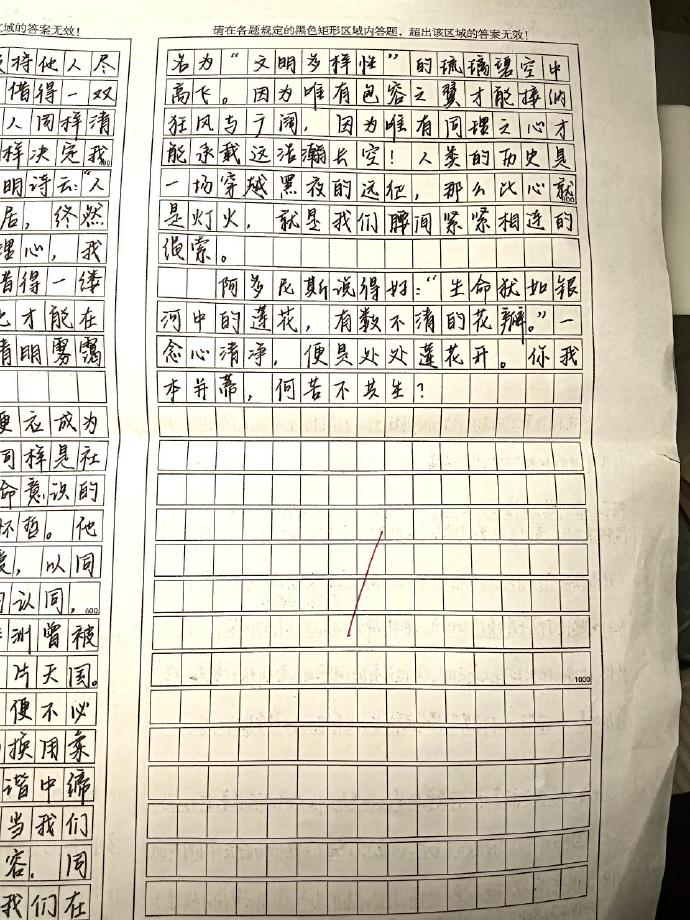 区域的答案无效！
持他人尽
借得一双
人同样清
样决定我
明诗云："人
居，终然
理心，我
借得一缕
也才能在
清明雾霭
便衣成为
同样是社
命意识的
怀哲。他
，以同
认同，
600
洲曾被
片天国。
便不必
换用柔
谐中缔
当我们
容，同
我们在
请在各题规定的黑色矩形区域内答题，超出该区域的答案无效！
名为“文明多样性”的琉璃碧空中
高飞。因为唯有包容之翼才能接纳
狂风与广阔，因为唯有同理之心才
能承载这浩瀚长空！人类的历史是
一场穿越黑夜的远征，那么比心就
是灯火，就是我们腰间紧紧相连的
绳索。
阿多尼斯说得好：“生命犹如银
河中的莲花，有数不清的花瓣。”一
念心清净，便是处处莲花开。你我
本并蒂，何苦不共生？
1000